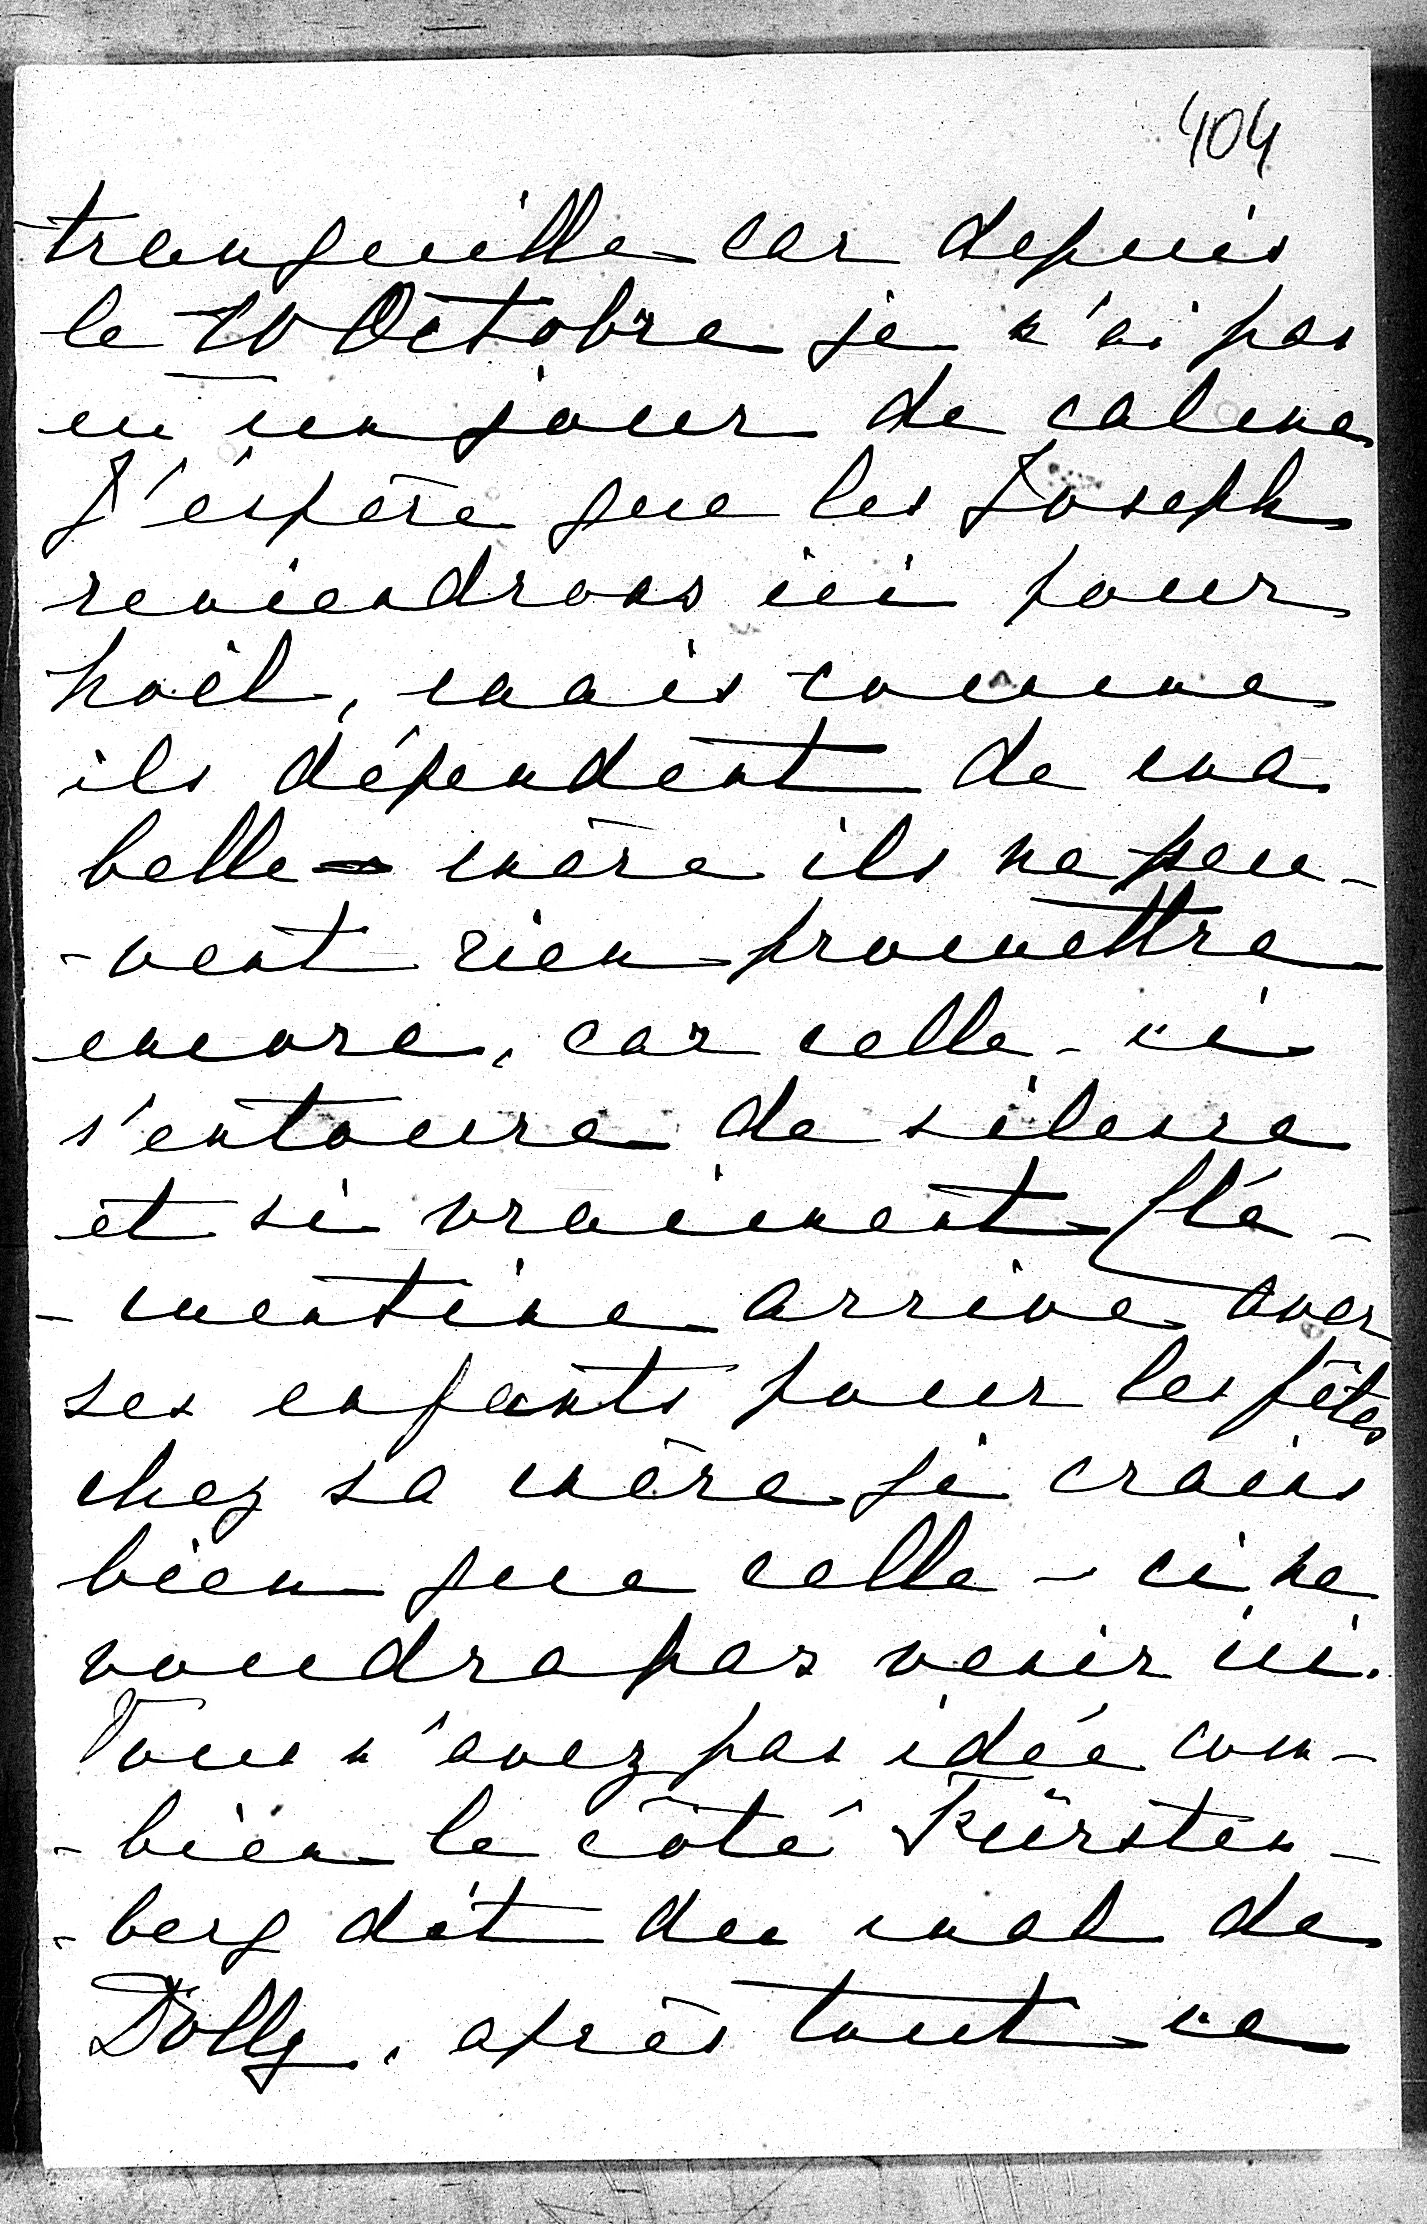 404
tranquille car depuis
le 10 Octobre je n'ai pas
eu un jour de calme
J'éspère que les Joseph
reviendrons ici pour
noël, mais comme
ils dépendent de ma
belle-mère ils ne peu-
-vent rien promettre
encore, car celle-ci
s'entoure de silence
et si vraiment Clé-
-mentine arrive avec
ses enfants pour les fêtes
chez sa mère je crains
bien que celle-ci ne
voudra pas venir ici.
Vous n'avez pas idée com-
-bien le côté Fürsten-
-berg dit du mal de
Dolly, après tout ce